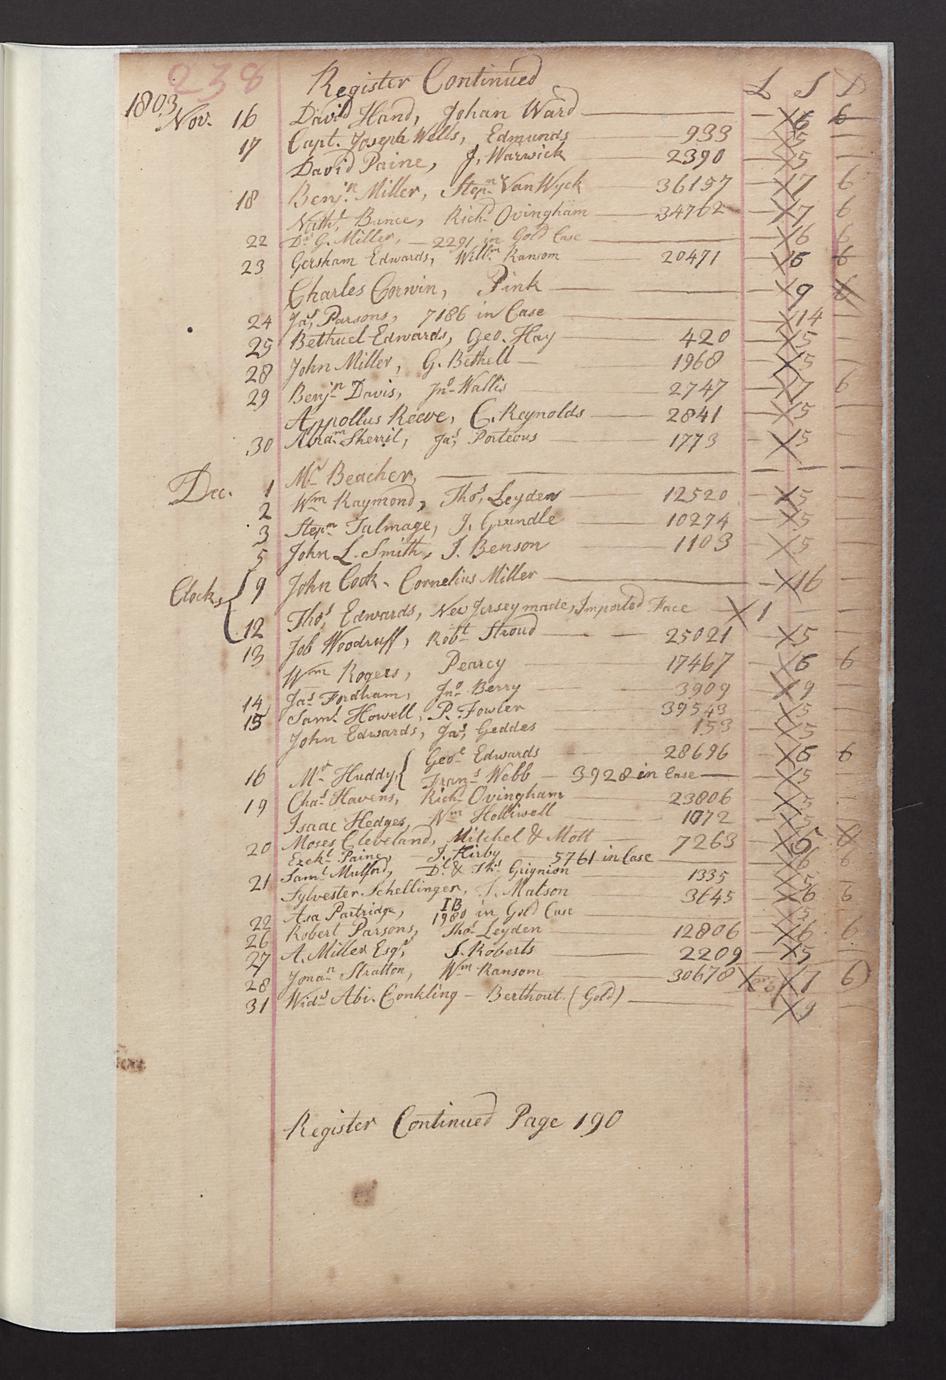 238
Register Continued £ S D
1803
Nov. 16 David Hand, Johan Ward 6 6
17 Capt. Joseph Wells, Edmunds 933 5
David Paine, J. Warwick 2390 5
18 Benjn. Miller, Stepn. Van Wyck 36157 7 6
Nathl. Bunce, Richd. Ovingham 34762 7 6
22 Dr. G. Miller, 2291 in Gold Case 6 6
23 Gersham Edwards, Willm. Ransom 20471 6 6
Charles Corwin, Pink 9
24 Jas. Parsons, 7186 in Case 14
25 Bethuel Edwards, Geo. Hay 420 5
28 John Miller, G. Bethell 1968 5
29 Benjn. Davis, Jno. Wallis 2747 7 6
Appollus Reeve, C. Reynolds 2841 5
30 Abram. Sherril, Jas. Porteous 1773 5
Dec. 1 Mr. Beacher,
2 Wm. Raymond, Thos. Leyden 12520 5
3 Stepn. Talmage, J. Grundle 10274 5
5 John L. Smith, J. Benson 1103 5
Clocks { 9 John Cook - Cornelius Miller 16
12 Thos. Edwards, New Jersey made, Imported Face 1
13 Job Woodruff, Robt. Stroud 25021 5
Wm. Rogers, Pearcy 17467 6 6
14 Jas. Fordham, Jno. Berry 3909 9
15 Saml. Howell, P. Fowler 39543 5
John Edwards, Jas. Geddes 153 5
16 Mr. Huddy, { Geoe. Edwards 28696 6 6
Frans. Webb - 3928 in Case 5
19 Chas. Havens, Richd. Ovingham 23806 5
Isaac Hedges, Wm. Holliwell 1072 5
20 Moses Cleveland, Mitchel & Mott 7263 5
Ezekl. Paine, J. Kirby 5761 in Case 6 6
21 Saml. Mulford, Dl. & Ths. Grignion 1335 5
Sylvester Schellinger, J. Matson 3645 6 6
22 Asa Partridge, IB 1980 in Gold Case 5
26 Robert Parsons, Thos. Leyden 12806 6 6
27 A. Miller Esqr. S. Roberts 2209 5
28 Jonan. Stratton, Wm. Ransom 30678 7 6
31 Wido. Abi. Conkling - Berthout (Gold) 9
Register Continued Page 190